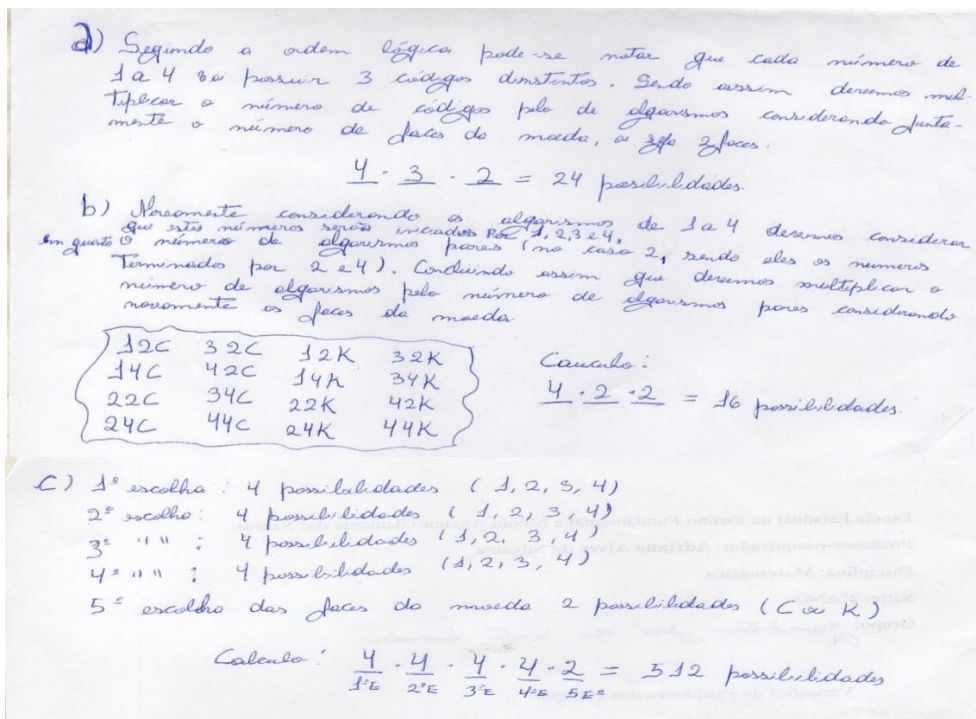 a) Seguindo a ordem lógica pode-se notar que cada número de
1 a 4 vai possuir 3 códigos distintos. Sendo assim devemos mul-
tiplicar o número de códigos pelo de algarismos considerando junta-
mente o número de faces da moeda, ou seja 2 faces.
4 . 3 . 2 = 24 possibilidades.
b) Novamente considerando os algarismos de 1 a 4 devemos considerar
que estes números serão iniciados por 1, 2, 3 e 4,
em quanto o número de algarismos pares (no caso 2, sendo eles os numeros
terminados por 2 e 4). Concluindo assim que devemos multiplicar o
número de algarismos pelo número de algarismos pares considerando
novamente as faces da moeda.
12C 32C 12K 32K
14C 42C 14K 34K
22C 34C 22K 42K
24C 44C 24K 44K
Cauculo:
4 . 2 . 2 = 16 possibilidades.
C) 1ª escolha : 4 possibilidades (1, 2, 3, 4)
2ª escolha : 4 possibilidades (1, 2, 3, 4)
3ª " " : 4 possibilidades (1, 2, 3, 4)
4ª " " : 4 possibilidades (1, 2, 3, 4)
5ª escolha das faces da moeda 2 possibilidades (C ou K)
Calculo : 4 . 4 . 4 . 4 . 2 = 512 possibilidades
1ªE 2ªE 3ªE 4ªE 5Eª